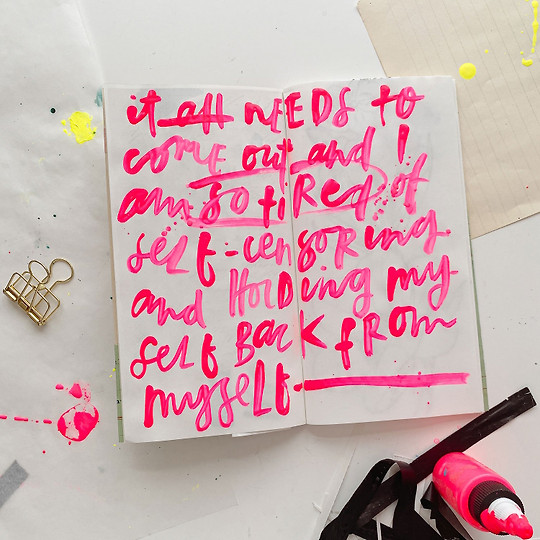 it all NEEDS to
come out and I
am so tiRed of
self-censoring
and HOLDing my-
self BacK fROM
myself.